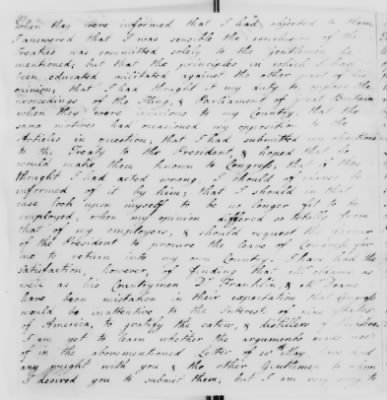 When they were informed that I had objected to them
I answered that I was sensible the conclusion of the
Treaties was committed solely to the Gentlemen he
mentioned; but that the principles in which I had
been educated militated against the other part of his
opinion; that I had thought it my duty to oppose the
proceedings of the King, & Parliament of great Britain
when they were injurious to my Country; that the
same motives had occasioned my opposition to the
Articles in question; that I had submitted my objections
to the Treaty to the President, & hoped that he
would make them known to Congress; that if they
thought I had acted wrong, I should of course be
informed of it by him; that I should in that
case look upon myself to be no longer fit to be
employed, when my opinion differed so totally from
that of my employers, & should request the favour
of the President to procure the leave of Congress for
me to return into my own Country. I have had the
satisfaction, however, of finding that
well as his Countrymen Dr Franklin, & Mr Deane
have been mistaken in their expectation that Congress
would be inattentive to the Interest of nine States
of America, to gratify the eaters, & distillers of Molasses.
I am yet to learn whether the arguments made use
of in the abovementioned Letter of have had
any weight with you & the other Gentlemen to whom
I desired you to submit them, but I am very sorry to